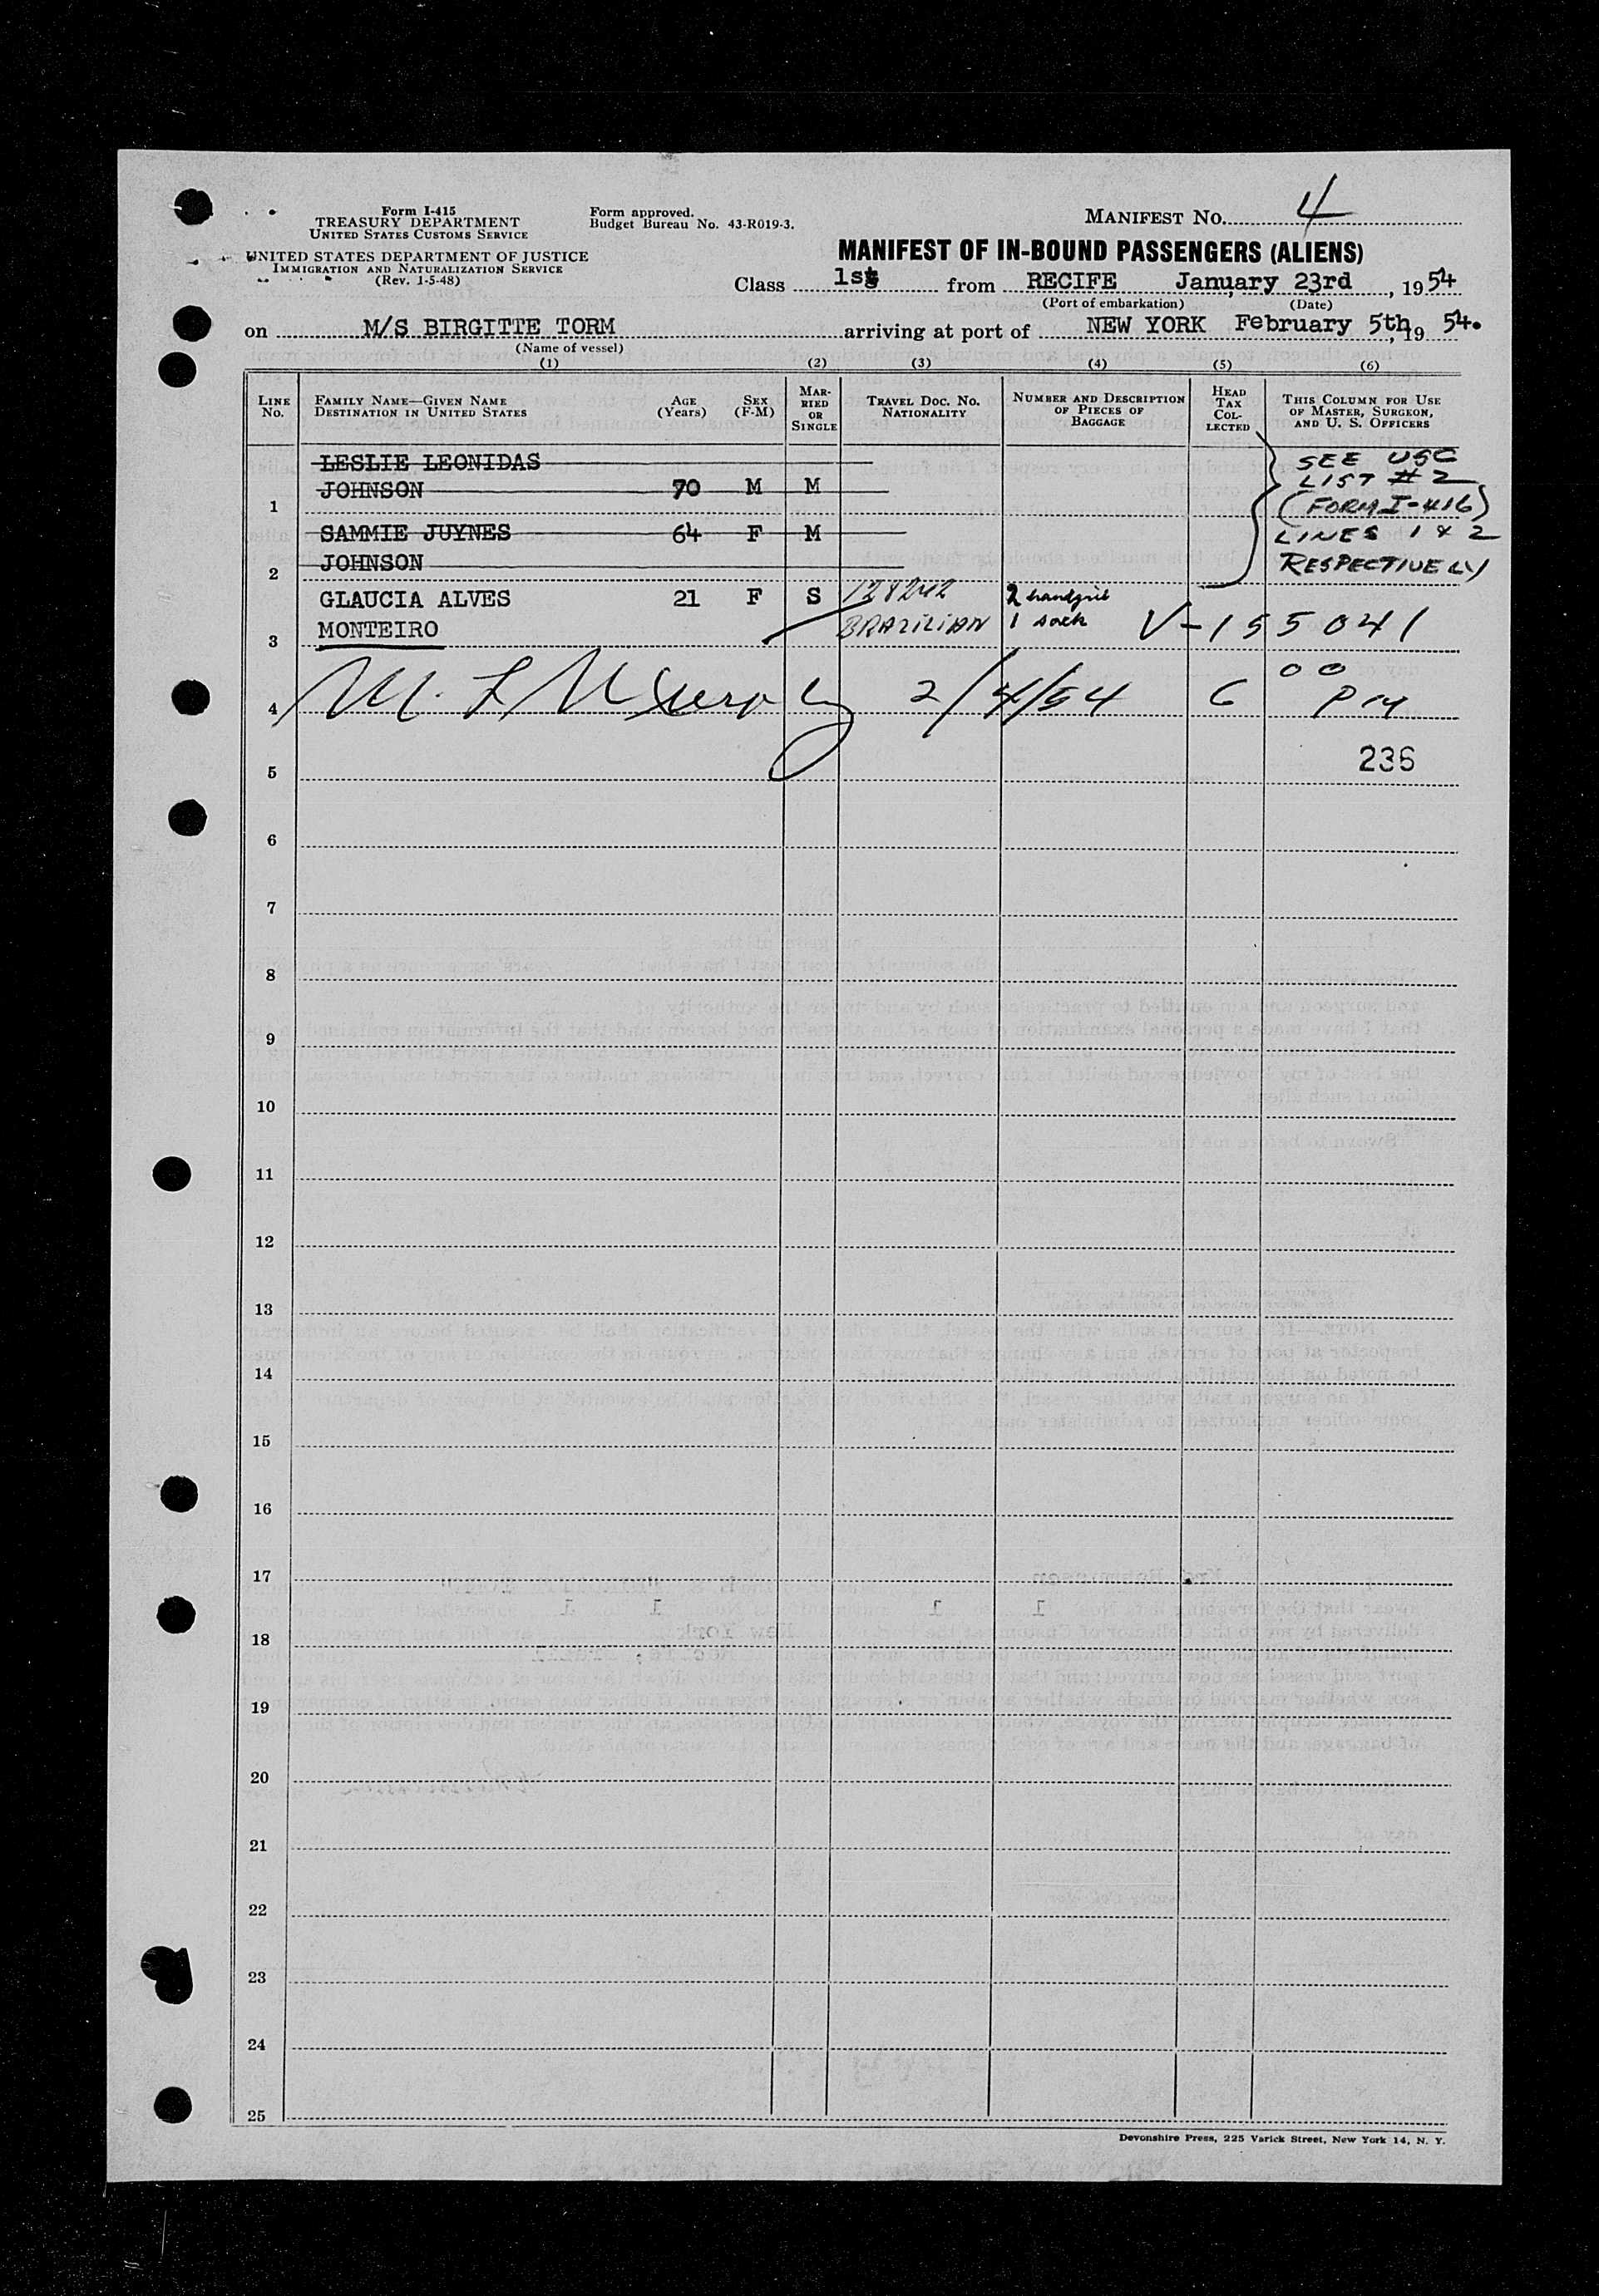 Form I-415
TREASURY DEPARTMENT
UNITED STATES CUSTOMS SERVICE
UNITED STATES DEPARTMENT OF JUSTICE
IMMIGRATION AND NATURALIZATION SERVICE
(Rev. 1-5-48)
Form approved.
Budget Bureau No. 43-R019-3.
MANIFEST NO. 4
MANIFEST OF IN-BOUND PASSENGERS (ALIENS)
Class 1st from RECIFE January 23rd, 1954
(Port of embarkation) (Date)
on M/S BIRGITTE TORM arriving at port of NEW YORK February 5th, 19 54.
(Name of vessel)
(1) (2) (3) (4) (5) (6)
LINE NO.
FAMILY NAME—GIVEN NAME
DESTINATION IN UNITED STATES
AGE (YEARS)
SEX (F-M)
MARRIED OR SINGLE
TRAVEL DOC. NO. NATIONALITY
NUMBER AND DESCRIPTION OF PIECES OF BAGGAGE
HEAD TAX COLLECTED
THIS COLUMN FOR USE OF MASTER, SURGEON, AND U. S. OFFICERS
LESLIE LEONIDAS
1 JOHNSON 70 M M
SEE USC
LIST # 2
(FORM I-416)
LINES 1 & 2
RESPECTIVELY
SAMMIE JUYNES 64 F M
2 JOHNSON
GLAUCIA ALVES 21 F S 128242 2 handgrip
3 MONTEIRO BRAZILIAN 1 sack V-155041
4 2/4/54 6 00 PM
5 236
6
7
8
9
10
11
12
13
14
15
16
17
18
19
20
21
22
23
24
25
Devonshire Press, 225 Varick Street, New York 14, N. Y.